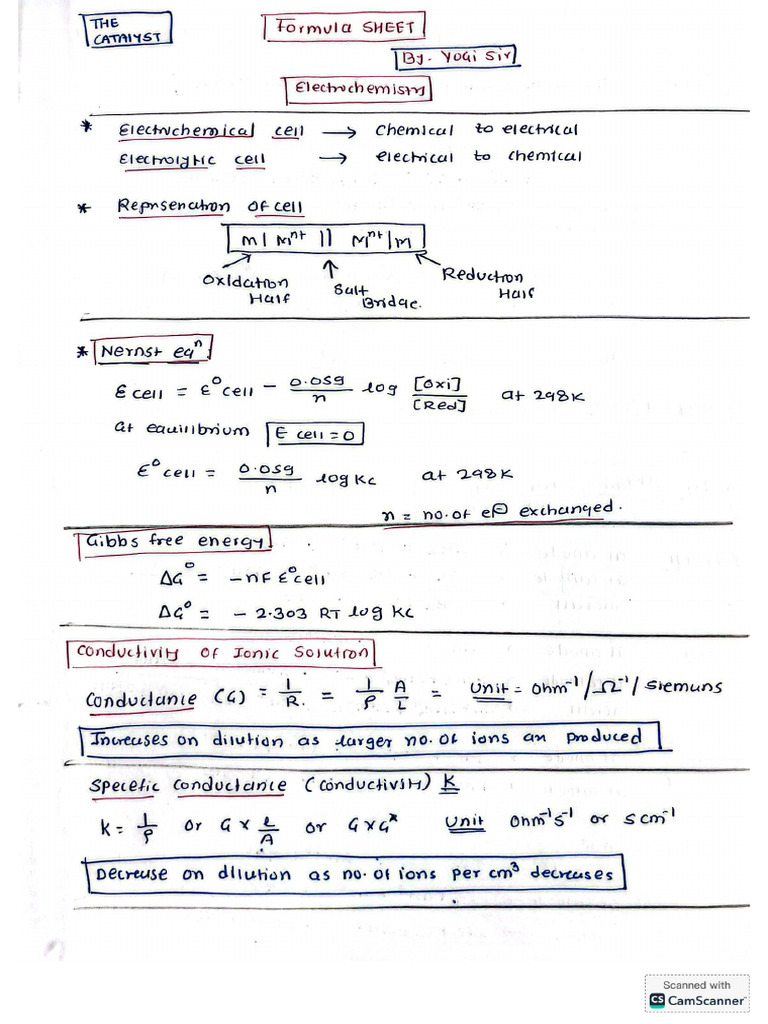 THE
CATALYST
Formula SHEET
By. YOGI Sir
Electrochemistry
* Electrochemical cell → chemical to electrical
Electrolytic cell → electrical to chemical
* Reprsenation of cell
M | Mⁿ⁺ || Mⁿ⁺ | M
Oxidation
Half
Salt
Bridge.
Reduction
Half
* Nernst eqⁿ
Ecell = E°cell − 0.059/n log [Oxi]/[Red] at 298K
at equilibrium E cell = 0
E°cell = 0.059/n log Kc at 298K
n = no. of e⊖ exchanged.
Gibbs free energy
ΔG° = −nFE°cell
ΔG° = − 2.303 RT log Kc
Conductivity of Ionic Solution
Conductance (G) = 1/R. = 1/ρ A/L = Unit = ohm⁻¹/Ω⁻¹/siemuns
Increases on dilution as larger no. of ions an produced
Specefic conductance (conductivity) K
K = 1/ρ or G × l/A or G×G* Unit Ohm⁻¹s⁻¹ or s cm⁻¹
Decrease on dilution as no. of ions per cm³ decreases
Scanned with
CS CamScanner